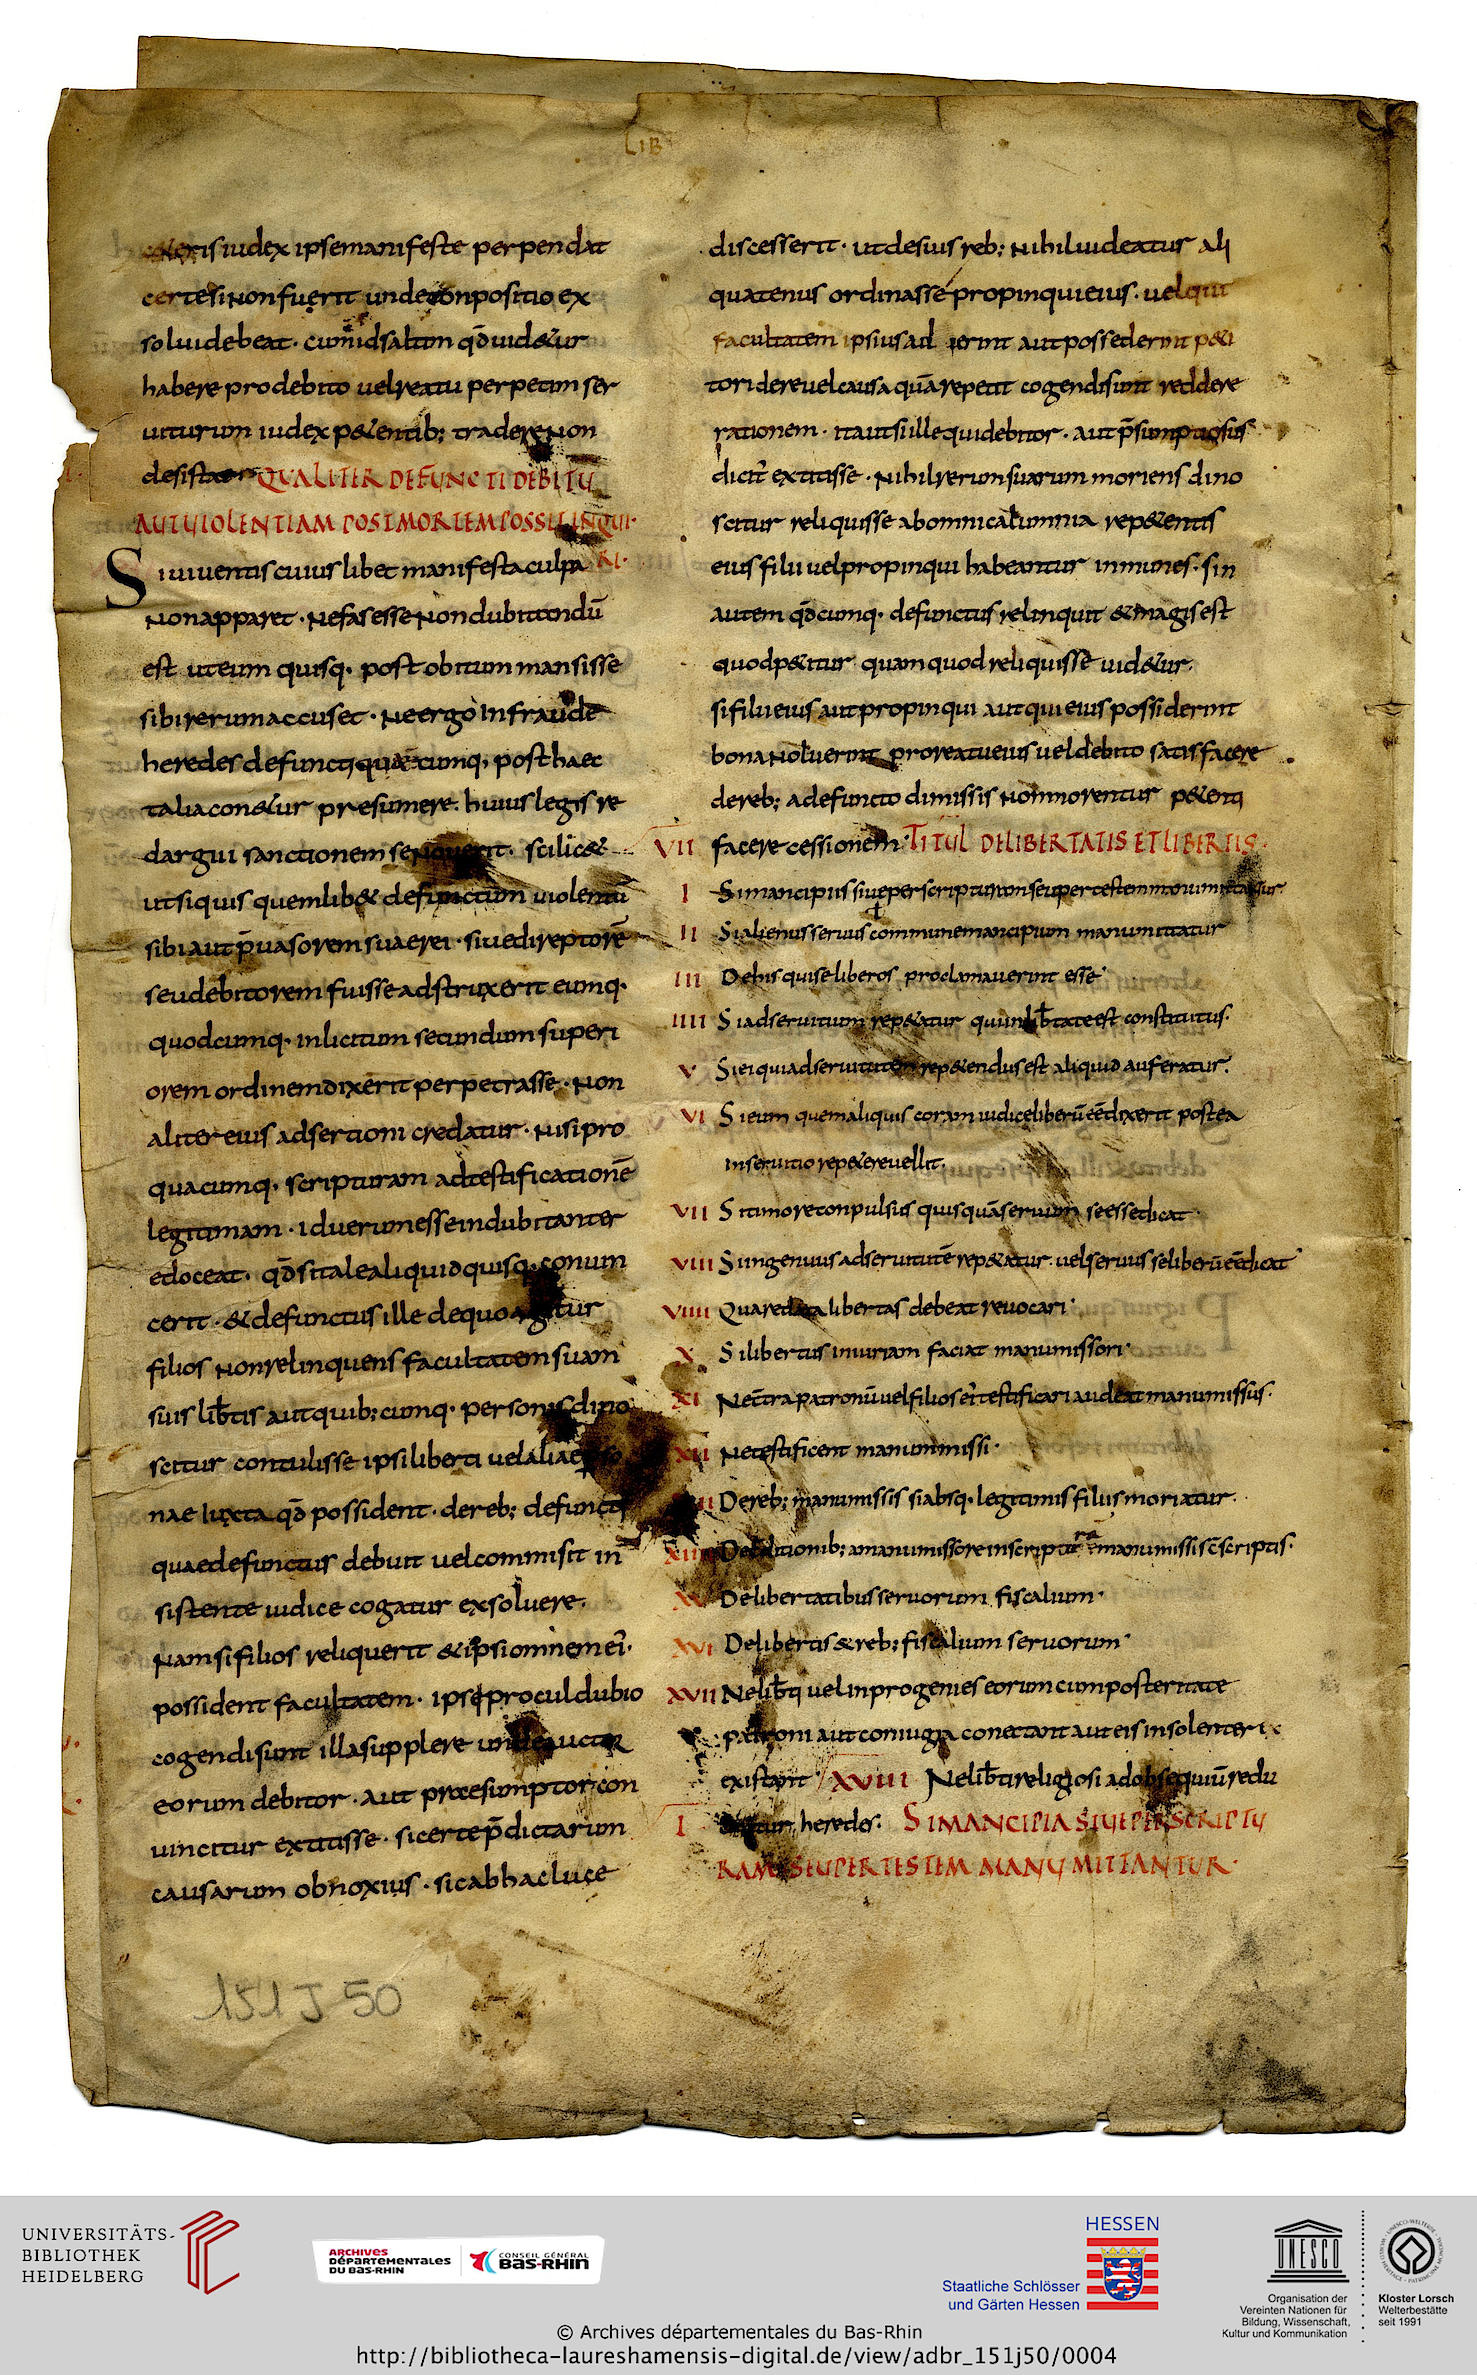 LIB
iudex ipse manifeste perpendat
certe si non fuerit unde conpositio ex
solui debeat · cum id saltim qđ uidetur
habere pro debito uel reatu perpetim ser
uiturum iudex petentib; tradere non
desistat QUALITER DEFUNCTI DEBITŪ
AUT UIOLENTIAM POST MORTEM POSSIT INQUI
RI ·
Si uiuentis cuiuslibet manifesta culpa
non apparet · nefas esse non dubitandū
est ut eum quisq · post obitum mansisse
sibi rerum accuset · ne ergo in fraude
heredes defuncti quaecumq; post haec
talia conetur presumere · huius legis re
dargui sanctionem se nouerit · scilicet
ut si quis quemlibet defunctum uiolentū
sibi aut p̄uasorem suae rei · siue direptorē
seu debitorem fuisse adstruxerit eumq ·
quodcumq · inlicitum secundum superi
orem ordinem dixerit perpetrasse · non
aliter eius adsertioni credatur · nisi pro
quacumq · scripturam ad testificationē
legitimam · id uerum esse indubitanter
edoceat · qđ si tale aliquid quisq · conuin
cerit · & defunctus ille de quo agitur
filios non relinquens facultatem suam
suis lib̄tis aut quib; cumq · personis dino
scitur contulisse ipsi liberti uel aliae
nae iuxta qđ possident · de reb; defuncti
quae defunctus debuit uel commisit in
sistente iudice cogatur exsoluere ·
Nam si filios reliquerit & ipsi omnem ei ·
possident facultatem · ipsi procul dubio
cogendi sunt illa supplere unde auctor
eorum debitor · aut praesumptor con
uincitur extitisse · si certe p̄dictarum
causarum obnoxius · sic ab hac luce
151 J 50
discesserit · ut de suis reb; nihil uideatur ali
quatenus ordinasse propinqui eius · uel qui
facultatem ipsius adierint aut possederint peti
tori de re uel causa quā repetit cogendi sunt reddere
rationem · ita ut si ille qui debitor · aut p̄sumptiosus
dicit̄ extitisse · nihil rerum suarum moriens dino
scitur reliquisse ab omni calumnia repetentis
eius filii uel propinqui habeantur inmunes · sin
autem qđcumq · defunctus relinquit & magis est
quod petitur quam quod reliquisse uidetur ·
si filii eius aut propinqui aut qui eius possiderint
bona noluerint pro reatu eius uel debito satisfacere
de reb; a defuncto dimissis non morentur petenti
facere cessionem · VII TITUL DE LIBERTATIS ET LIBERTIS ·
I Si mancipiis siue per scripturam seu per testem manumittantur
II Si alienus seruus commune mancipium manumittatur
III De his qui se liberos proclamauerint esse ·
IIII Si ad seruitium repetatur qui in lib̄tate est constitutus ·
V Si ei qui ad seruitutem repetendus est aliquid auferatur ·
VI Si eum quem aliquis coram iudice liberū eē dixerit postea
in seruitio repetere uellit ·
VII Si timore conpulsus quisquā seruum se esse dicat ·
VIII Si ingenuus ad seruitutē repetatur · uel seruus se liberū eē dicat ·
VIIII Qua re data libertas debeat reuocari ·
X Si libertus iniuriam faciat manumissori ·
XI Ne c̄tra patronū uel filios ei testificari audeat manumissus ·
XII Ne testificent manummissi ·
XIII De reb; manumissis si absq · legitimis filiis moriatur ·
XIIII De conditionib; a manumissore in scriptura manumissis c̄scriptis ·
XV De libertatibus seruorum fiscalium ·
XVI De libertis & reb; fiscalium seruorum ·
XVII Ne lib̄ti uel in progenies eorum cum posteritate
patroni aut coniugia conectant aut eis insolenter
existant · XVIII Ne lib̄ti religiosi ad obsequiū redu
heredes · I SI MANCIPIA SIUE PER SCRIPTU
RAM SEU PER TESTEM MANUMITTANTUR ·
UNIVERSITÄTS-
BIBLIOTHEK
HEIDELBERG
ARCHIVES
DÉPARTEMENTALES
DU BAS-RHIN
CONSEIL GÉNÉRAL
BAS-RHIN
HESSEN
Staatliche Schlösser
und Gärten Hessen
UNESCO
Organisation der
Vereinten Nationen für
Bildung, Wissenschaft,
Kultur und Kommunikation
Kloster Lorsch
Welterbestätte
seit 1991
© Archives départementales du Bas-Rhin
http://bibliotheca-laureshamensis-digital.de/view/adbr_151j50/0004